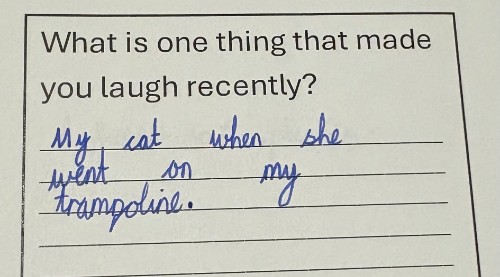 What is one thing that made
you laugh recently?
My cat when she
went on my
trampoline.